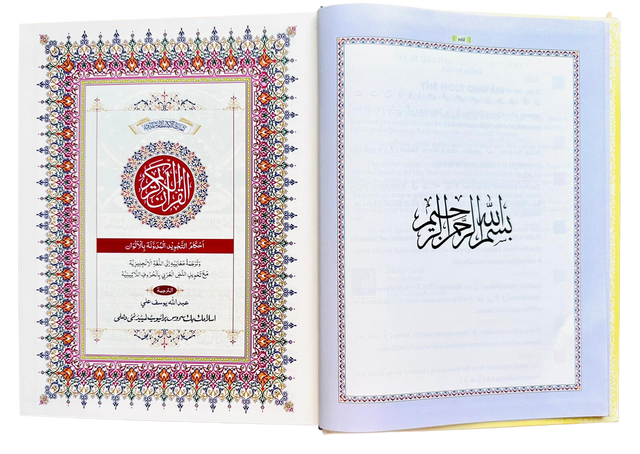 القرآن الكريم
أحكام التجويد المدونة بالألوان
وترجمة معانيه إلى اللغة الإنجليزية
مع تحويل النص العربي بالحروف اللاتينية
الترجمة
عبد الله يوسف علي
اسلامک بک سروس پرائیویٹ لمیٹڈ نئی دہلی
بسم الله الرحمن الرحيم